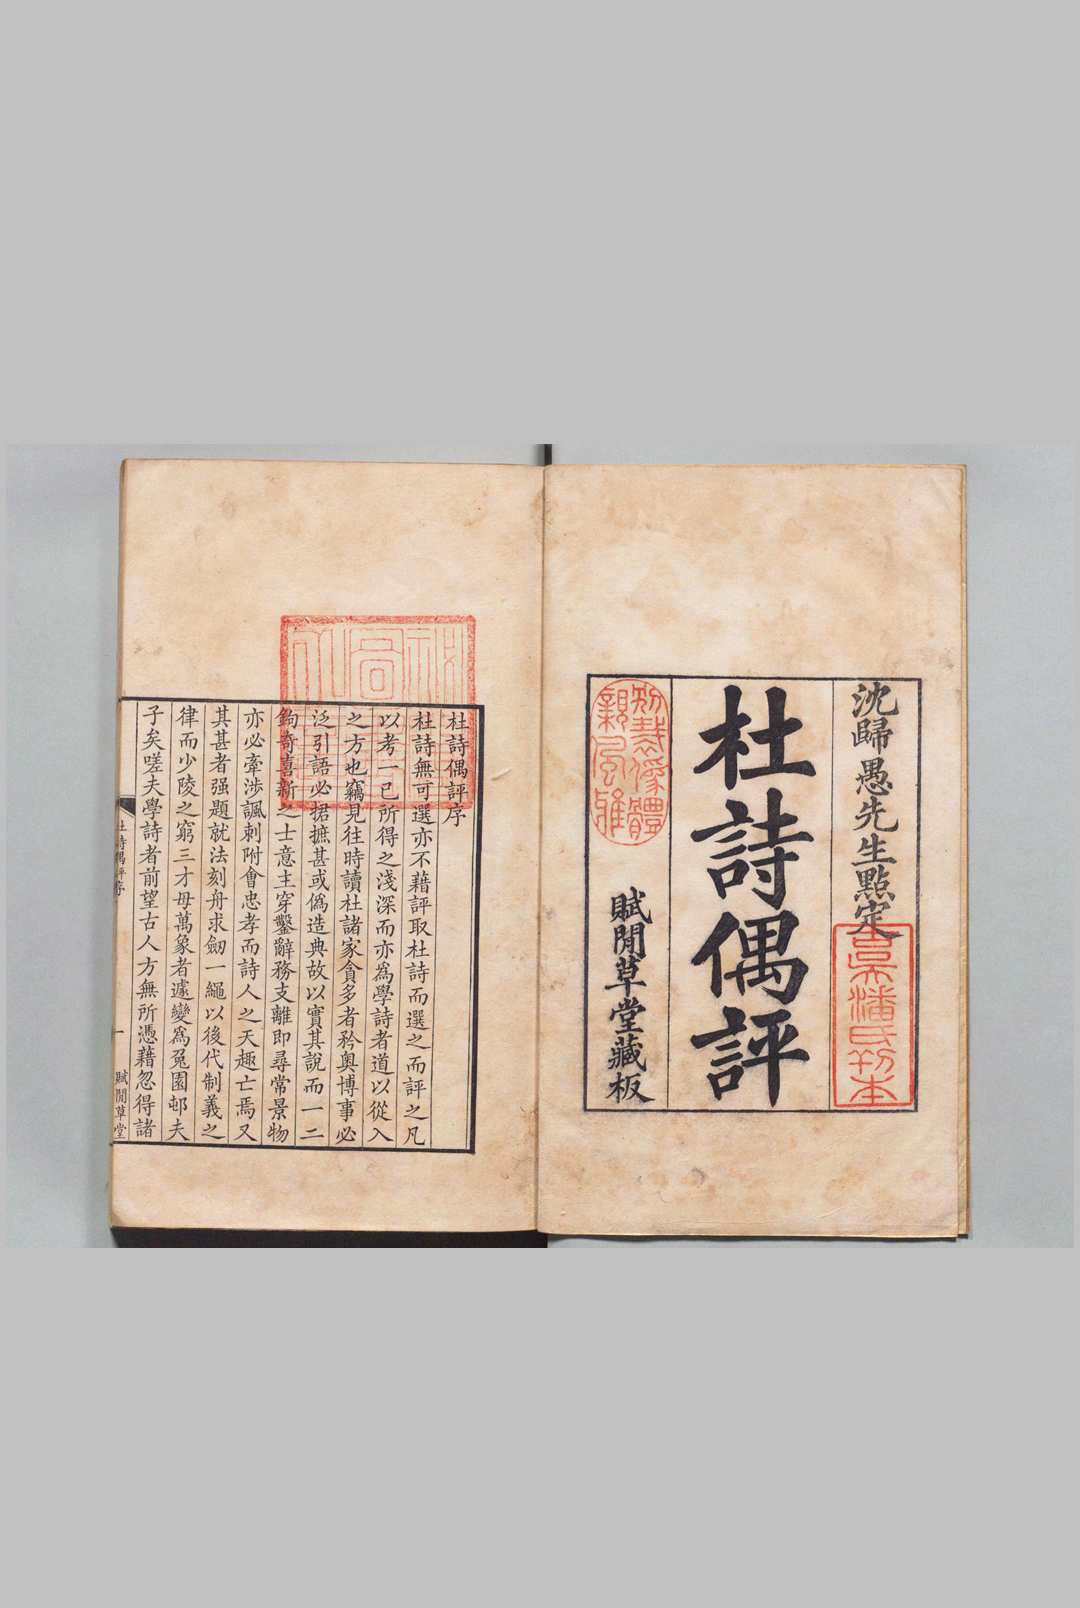 沈歸愚先生點定
杜詩偶評
賦閒草堂藏板
別裁偽體
親風雅
吾吴潘氏刊本
杜詩偶評序
杜詩無可選亦不藉評取杜詩而選之而評之凡
以考一己所得之淺深而亦為學詩者道以從入
之方也竊見往時讀杜諸家貪多者矜奥博事必
泛引語必捃摭甚或偽造典故以實其說而一二
鉤奇喜新之士意主穿鑿辭務支離即尋常景物
亦必牽涉諷刺附會忠孝而詩人之天趣亡焉又
其甚者强題就法刻舟求劒一繩以後代制義之
律而少陵之窮三才母萬象者遽變為兔園邨夫
子矣嗟夫學詩者前望古人方無所憑藉忽得諸
杜詩偶評序
一
賦閒草堂